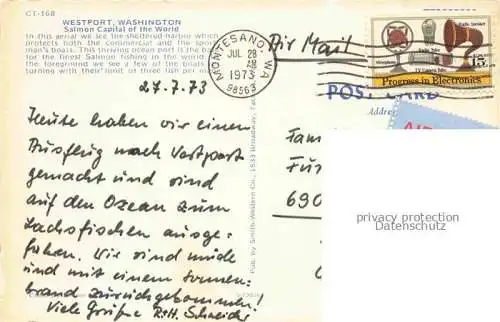 CT-168
WESTPORT, WASHINGTON
Salmon Capital of the World
In this aerial we see the sheltered harbor which
protects both the commercial and the
man's boats. This thriving ocean port is the
for the finest Salmon fishing in the world.
the foreground we see a few of the boats
turning with their limit of three fish per
MONTESANO, WA
JUL 28
AM
1973
98563
Air Mail
Radio
Progress in Electronics
POST CARD
Address
27.7.73
Heute haben wir einen
Ausflug nach Westport
gemacht und sind
auf den Ozean zum
Lachsfischen ausge-
fahren. Wir sind müde
und mit einem Sonnen-
brand zurückgekommen!
Viele Grüße R+H. Schneider
Pub. by Smith-Western Co., 1533 Broadway,
Fam
690
privacy protection
Datenschutz